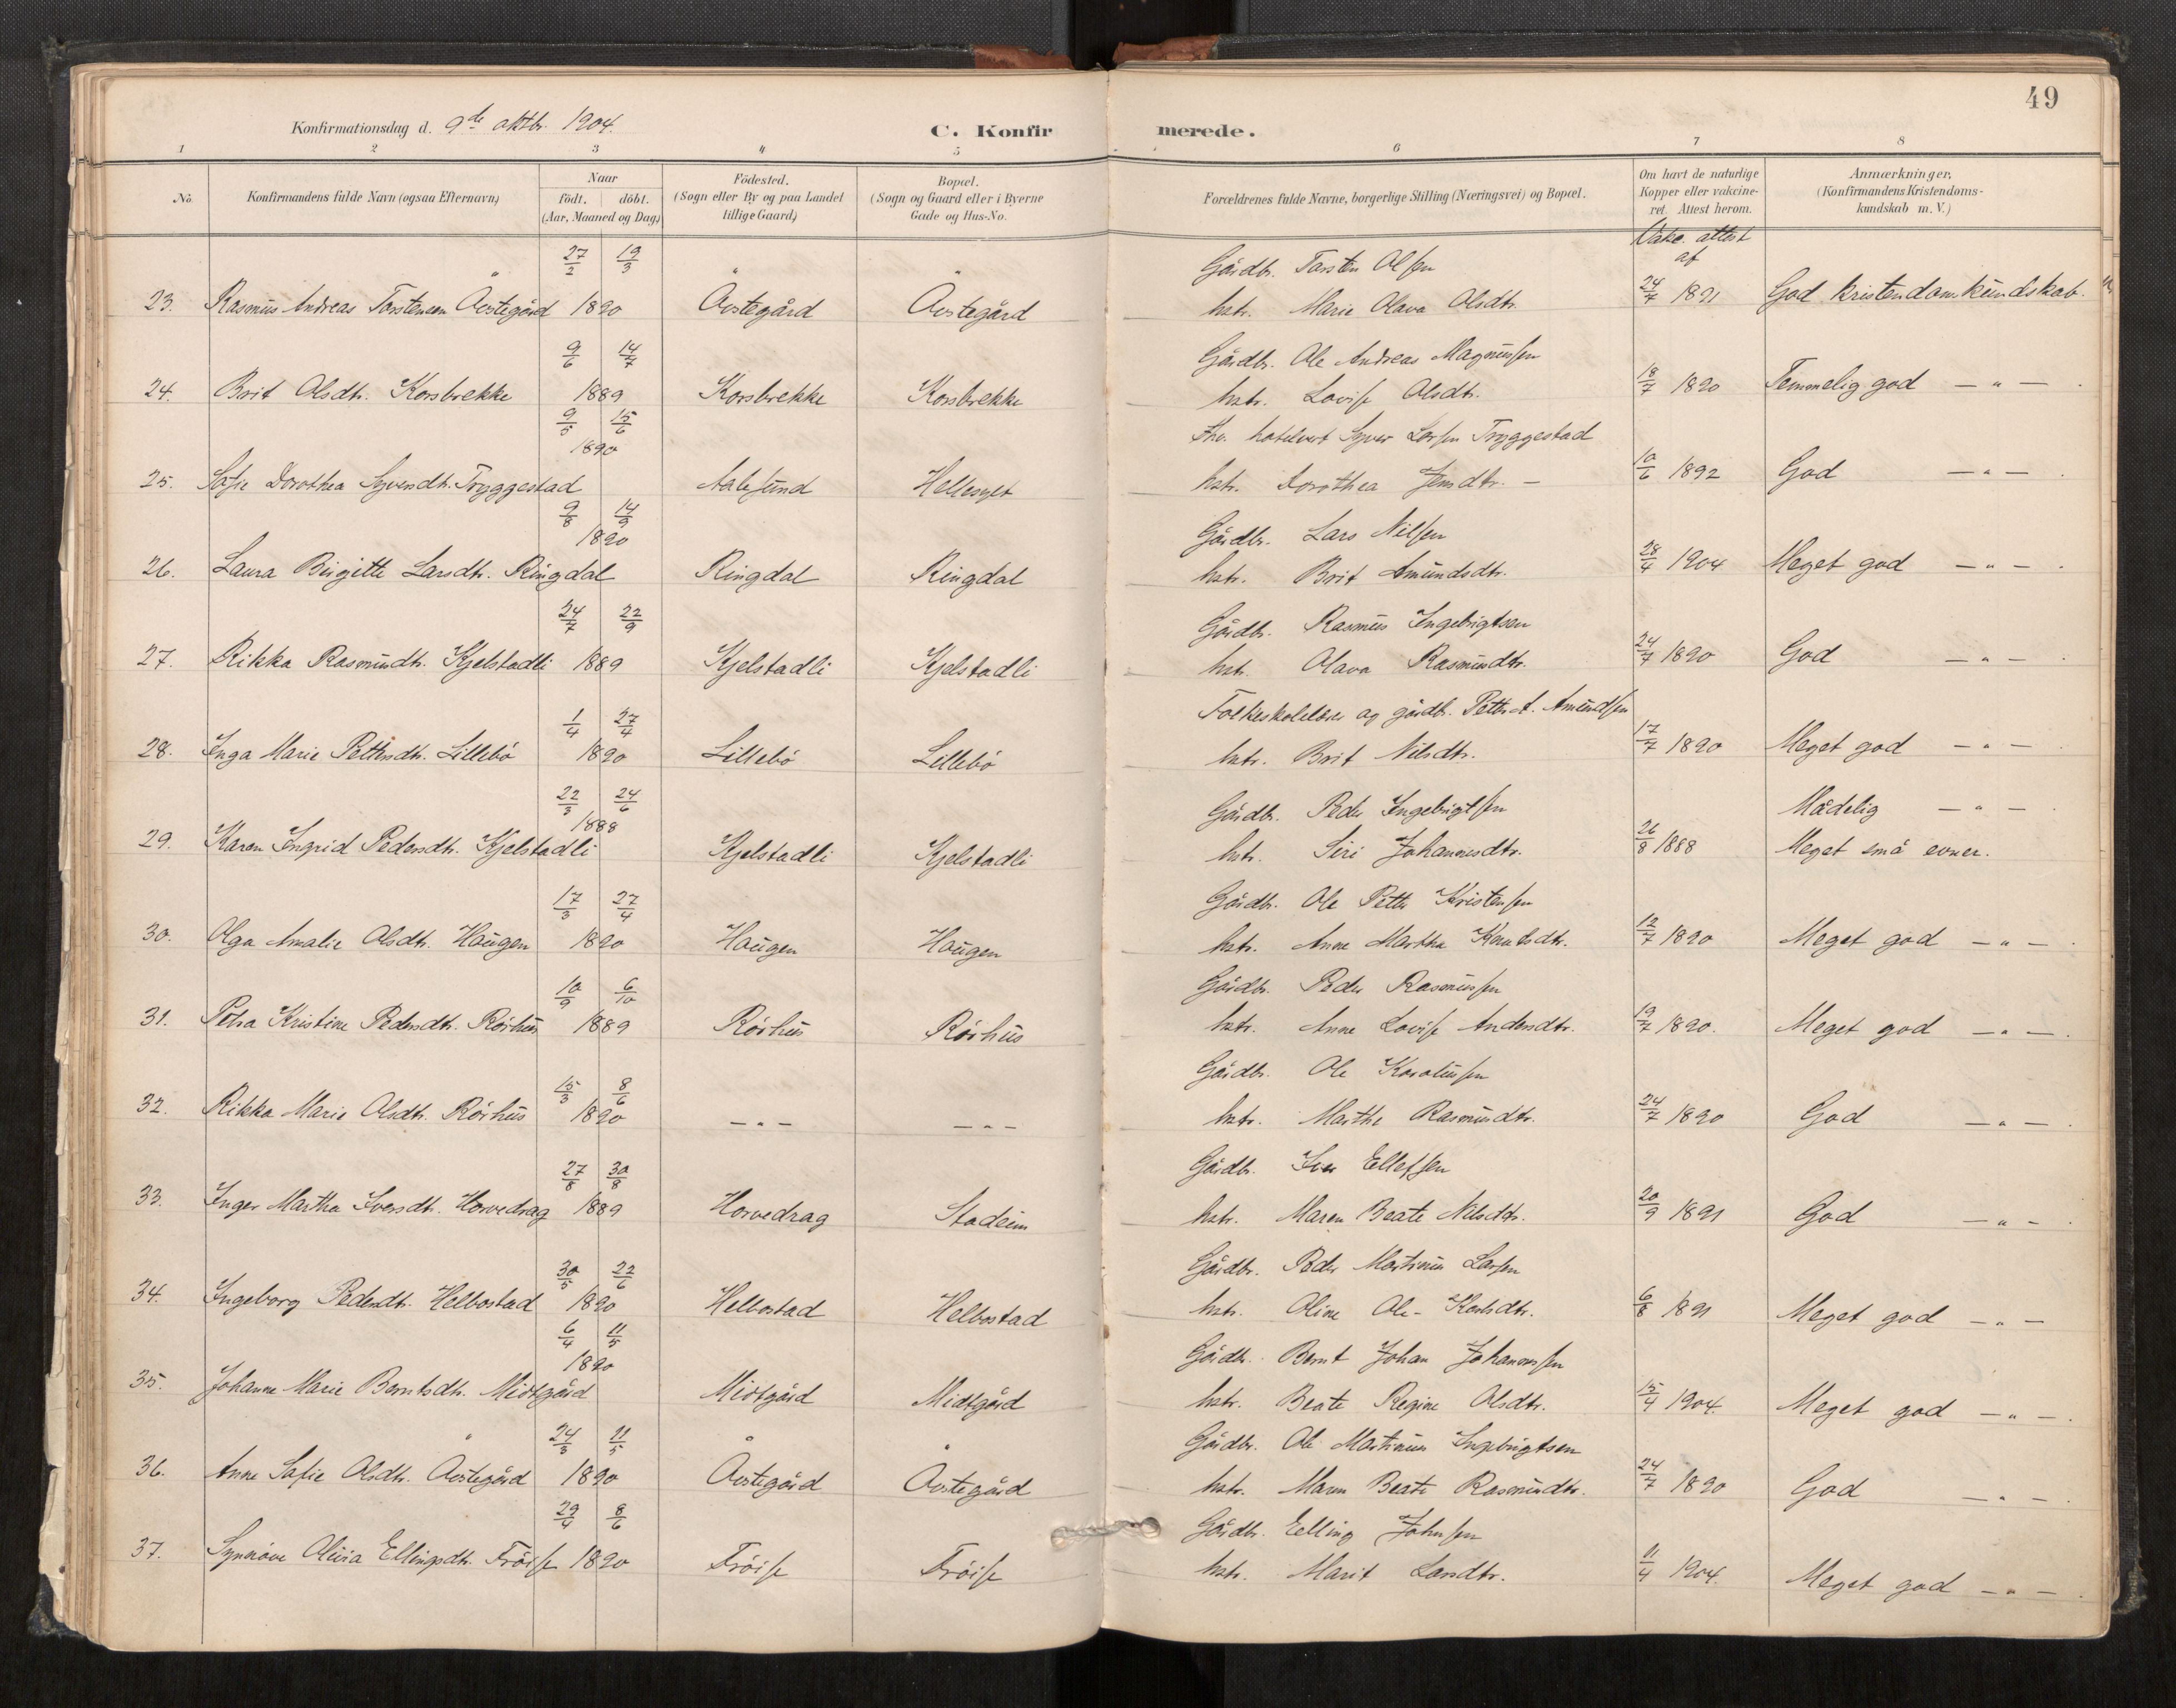 49
Konfirmationsdag d. 9de oktbr. 1904.
C. Konfirmerede.
1 2 3 4 5 6 7 8
No. Konfirmandens fulde Navn (ogsaa Efternavn) Naar født. döbt. (Aar, Maaned og Dag) Födested. (Sogn eller By og paa Landet tillige Gaard) Bopæl. (Sogn og Gaard eller i Byerne Gade og Hus-No. Forældrenes fulde Navne, borgerlige Stilling (Næringsvei) og Bopæl. Om havt de naturlige Kopper eller vakcineret. Attest herom. Anmærkninger, (Konfirmandens Kristendomskundskab m. V.)
Vakc. attest af
27/2 19/3 Gårdbr. Torsten Olsen
23. Rasmus Andreas Torstensen Åvstegård 1890 Åvstegård Åvstegård hstr. Marie Olava Olsdtr. 24/7 1891 God kristendomskundskab.
9/6 14/7 Gårdbr. Ole Andreas Magnussen
24. Brit Olsdtr. Korsbrekke 1889 Korsbrekke Korsbrekke hstr. Lovise Olsdtr. 18/7 1890 Temmelig god — " — .
9/5 15/6 hotelvert Syver Larsen Tryggestad
1890
25. Sofie Dorothea Syversdtr. Tryggestad Aalesund Hellesylt hstr. Dorothea Jensdtr. — 10/6 1892 God — " — .
9/8 14/9 Gårdbr. Lars Nilsen
1890
26. Laura Birgitte Larsdtr. Ringdal Ringdal Ringdal hstr. Brit Amundsdtr. 28/4 1904 Meget god — " — .
24/7 22/9 Gårdbr. Rasmus Ingebrigtsen
27. Rikka Rasmusdtr. Kjelstadli 1889 Kjelstadli Kjelstadli hstr. Olava Rasmusdtr. 24/7 1890 God — " — .
1/4 27/4 Folkeskolelærer og gårdbr. Petter A. Amundsen
28. Inga Marie Pettersdtr. Lillebö 1890 Lillebö Lillebö hstr. Brit Nilsdtr. 17/7 1890 Meget god — " — .
22/3 24/6 Gårdbr. Peder Ingebrigtsen Mådelig — " — .
1888
29. Karen Ingrid Pedersdtr. Kjelstadli Kjelstadli Kjelstadli hstr. Siri Johannesdtr. 26/8 1888 Meget små evner.
17/3 27/4 Gårdbr. Ole Petter Kristensen
30. Olga Amalie Olsdtr. Haugen 1890 Haugen Haugen hstr. Anne Martha Knutsdtr. 12/7 1890 Meget god — " — .
10/9 6/10 Gårdbr. Peder Rasmussen
31. Petra Kristine Pedersdtr. Rörhus 1889 Rörhus Rörhus hstr. Anne Lovise Andersdtr. 19/7 1890. Meget god — " — .
15/3 8/6 Gårdbr. Ole Karolussen
32. Rikka Marie Olsdtr. Rörhus 1890 — " — — " — hstr. Marthe Rasmusdtr. 24/7 1890 God — " — .
27/8 30/8 Gårdbr. Iver Ellefsen
33. Inger Martha Iversdtr. Horvedrag 1889 Horvedrag Stadeim hstr. Maren Beate Nilsdtr. 20/9 1891 God — " — .
30/5 22/6 Gårdbr. Peder Martinus Larsen
34. Ingeborg Pedersdtr. Helbostad 1890 Helbostad Helbostad hstr. Oline Ole-Karlsdtr. 6/8 1891 Meget god — " —
6/4 11/5 Gårdbr. Bernt Johan Johannessen
1890
35. Johanne Marie Berntsdtr. Midtgård Midtgård Midtgård hstr. Beate Regine Olsdtr. 15/4 1904. Meget god — " — .
24/3 11/5 Gårdbr. Ole Martinus Ingebrigtsen
36. Anne Sofie Olsdtr. Åvstegård 1890 Åvstegård Åvstegård hstr. Maren Beate Rasmusdtr. 24/7 1890 God — " — .
29/4 8/6 Gårdbr. Elling Johnsen
37. Synnöve Olivia Ellingsdtr. Fröise 1890 Fröise Fröise hstr. Marit Larsdtr. 11/4 1904. Meget god — " — .